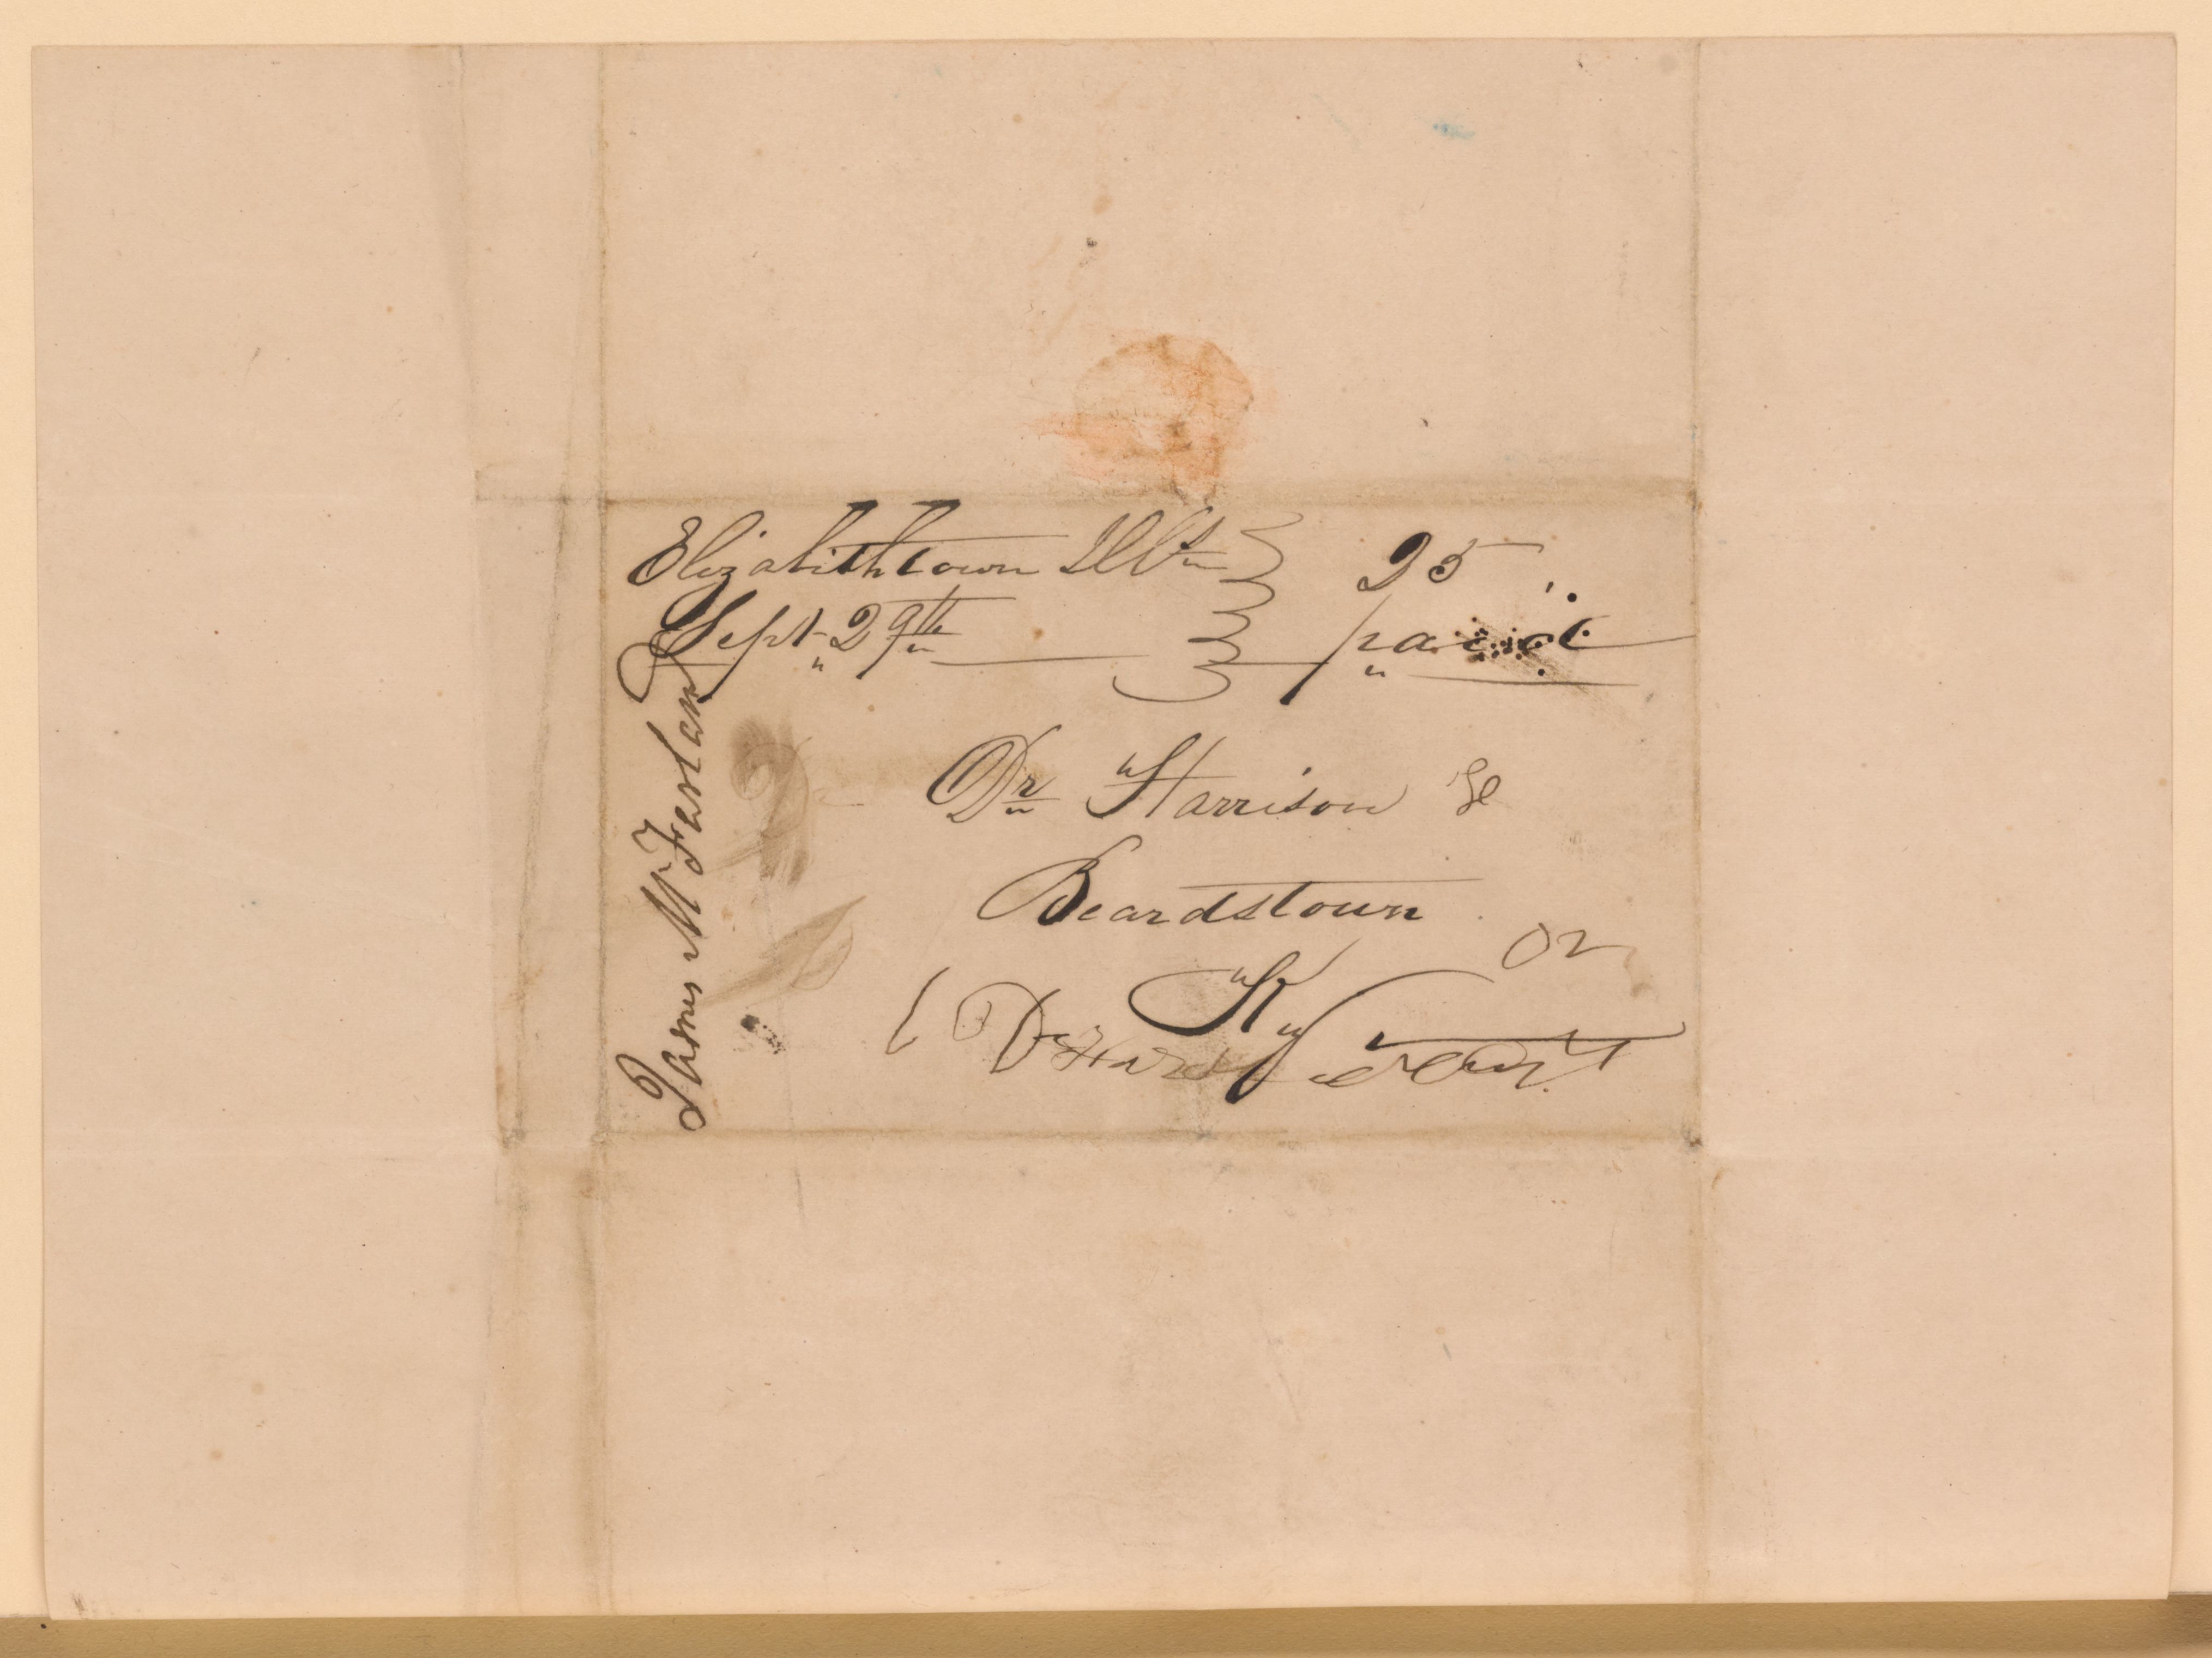 Elizabethtown Ills 25
Sept. 29th paid
Dr Harrison
Beardstown
Ky
James McFarlan